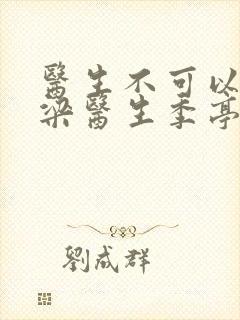 醫生不可以
梁醫生季亭
劉成群